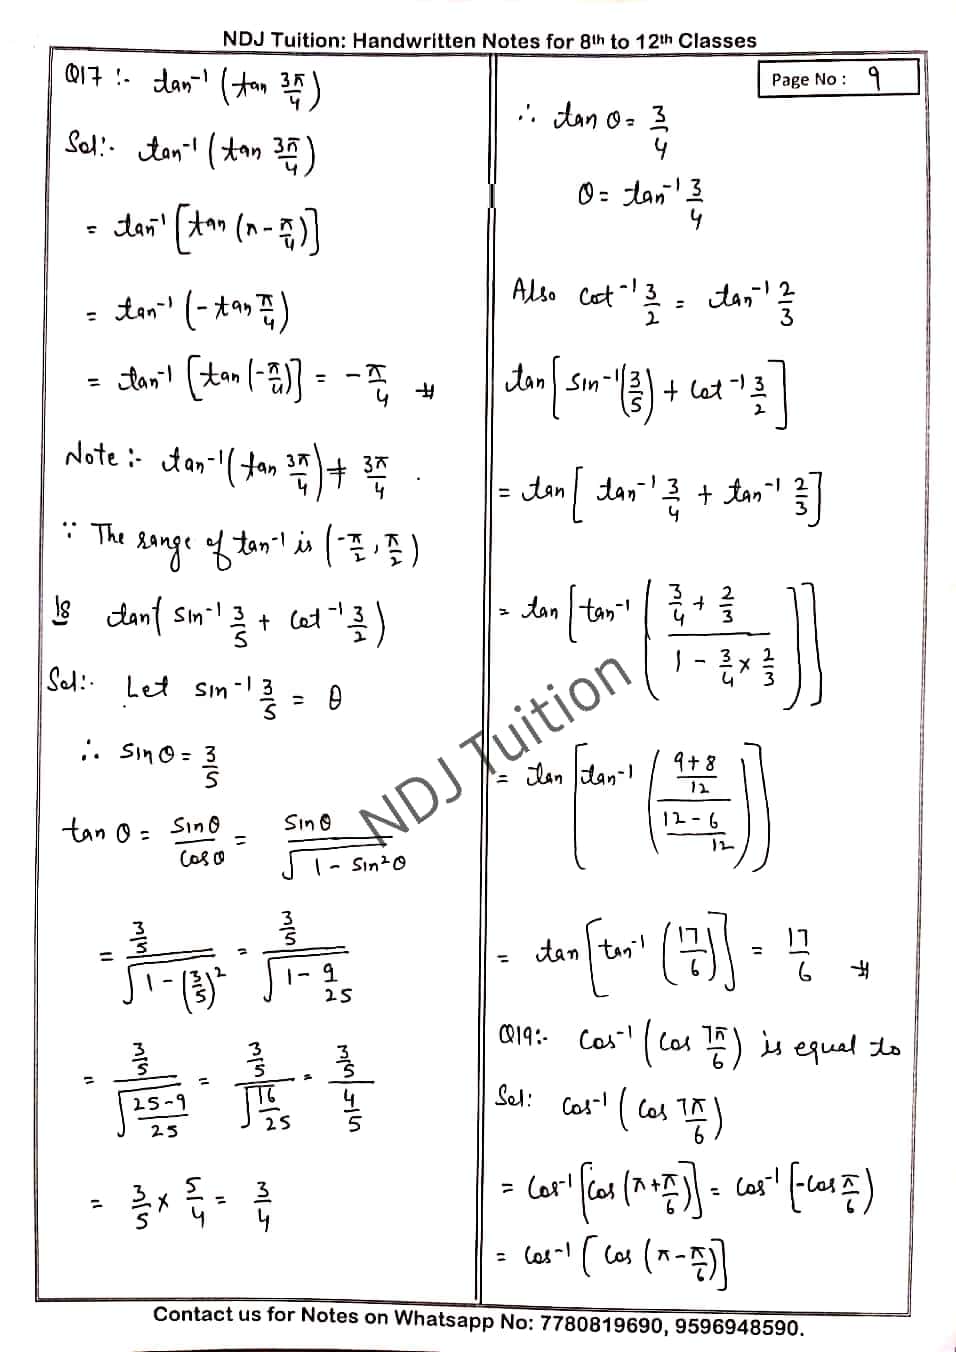 NDJ Tuition: Handwritten Notes for 8th to 12th Classes
Page No : 9
Q17 :- tan⁻¹(tan 3π/4)
Sol:- tan⁻¹(tan 3π/4)
= tan⁻¹[tan(π - π/4)]
= tan⁻¹(-tan π/4)
= tan⁻¹[tan(-π/4)] = -π/4 #
Note :- tan⁻¹(tan 3π/4) ≠ 3π/4 .
∵ The range of tan⁻¹ is (-π/2, π/2)
18 tan(sin⁻¹ 3/5 + cot⁻¹ 3/2)
Sol:- Let sin⁻¹ 3/5 = θ
∴ sinθ = 3/5
tan θ = sinθ/cosθ = sinθ/√(1 - sin²θ)
= (3/5)/√(1 - (3/5)²) = (3/5)/√(1 - 9/25)
= (3/5)/√((25-9)/25) = (3/5)/√(16/25) = (3/5)/(4/5)
= 3/5 × 5/4 = 3/4
∴ tan θ = 3/4
θ = tan⁻¹ 3/4
Also cot⁻¹ 3/2 = tan⁻¹ 2/3
tan[sin⁻¹(3/5) + cot⁻¹ 3/2]
= tan[tan⁻¹ 3/4 + tan⁻¹ 2/3]
= tan[tan⁻¹((3/4 + 2/3)/(1 - 3/4 × 2/3))]
= tan[tan⁻¹(((9+8)/12)/((12-6)/12))]
= tan[tan⁻¹(17/6)] = 17/6 #
Q19:- Cos⁻¹(Cos 7π/6) is equal to
Sol: Cos⁻¹(Cos 7π/6)
= Cos⁻¹[Cos(π+π/6)] = Cos⁻¹[-Cos π/6)
= Cos⁻¹[Cos(π-π/6)]
NDJ Tuition
Contact us for Notes on Whatsapp No: 7780819690, 9596948590.